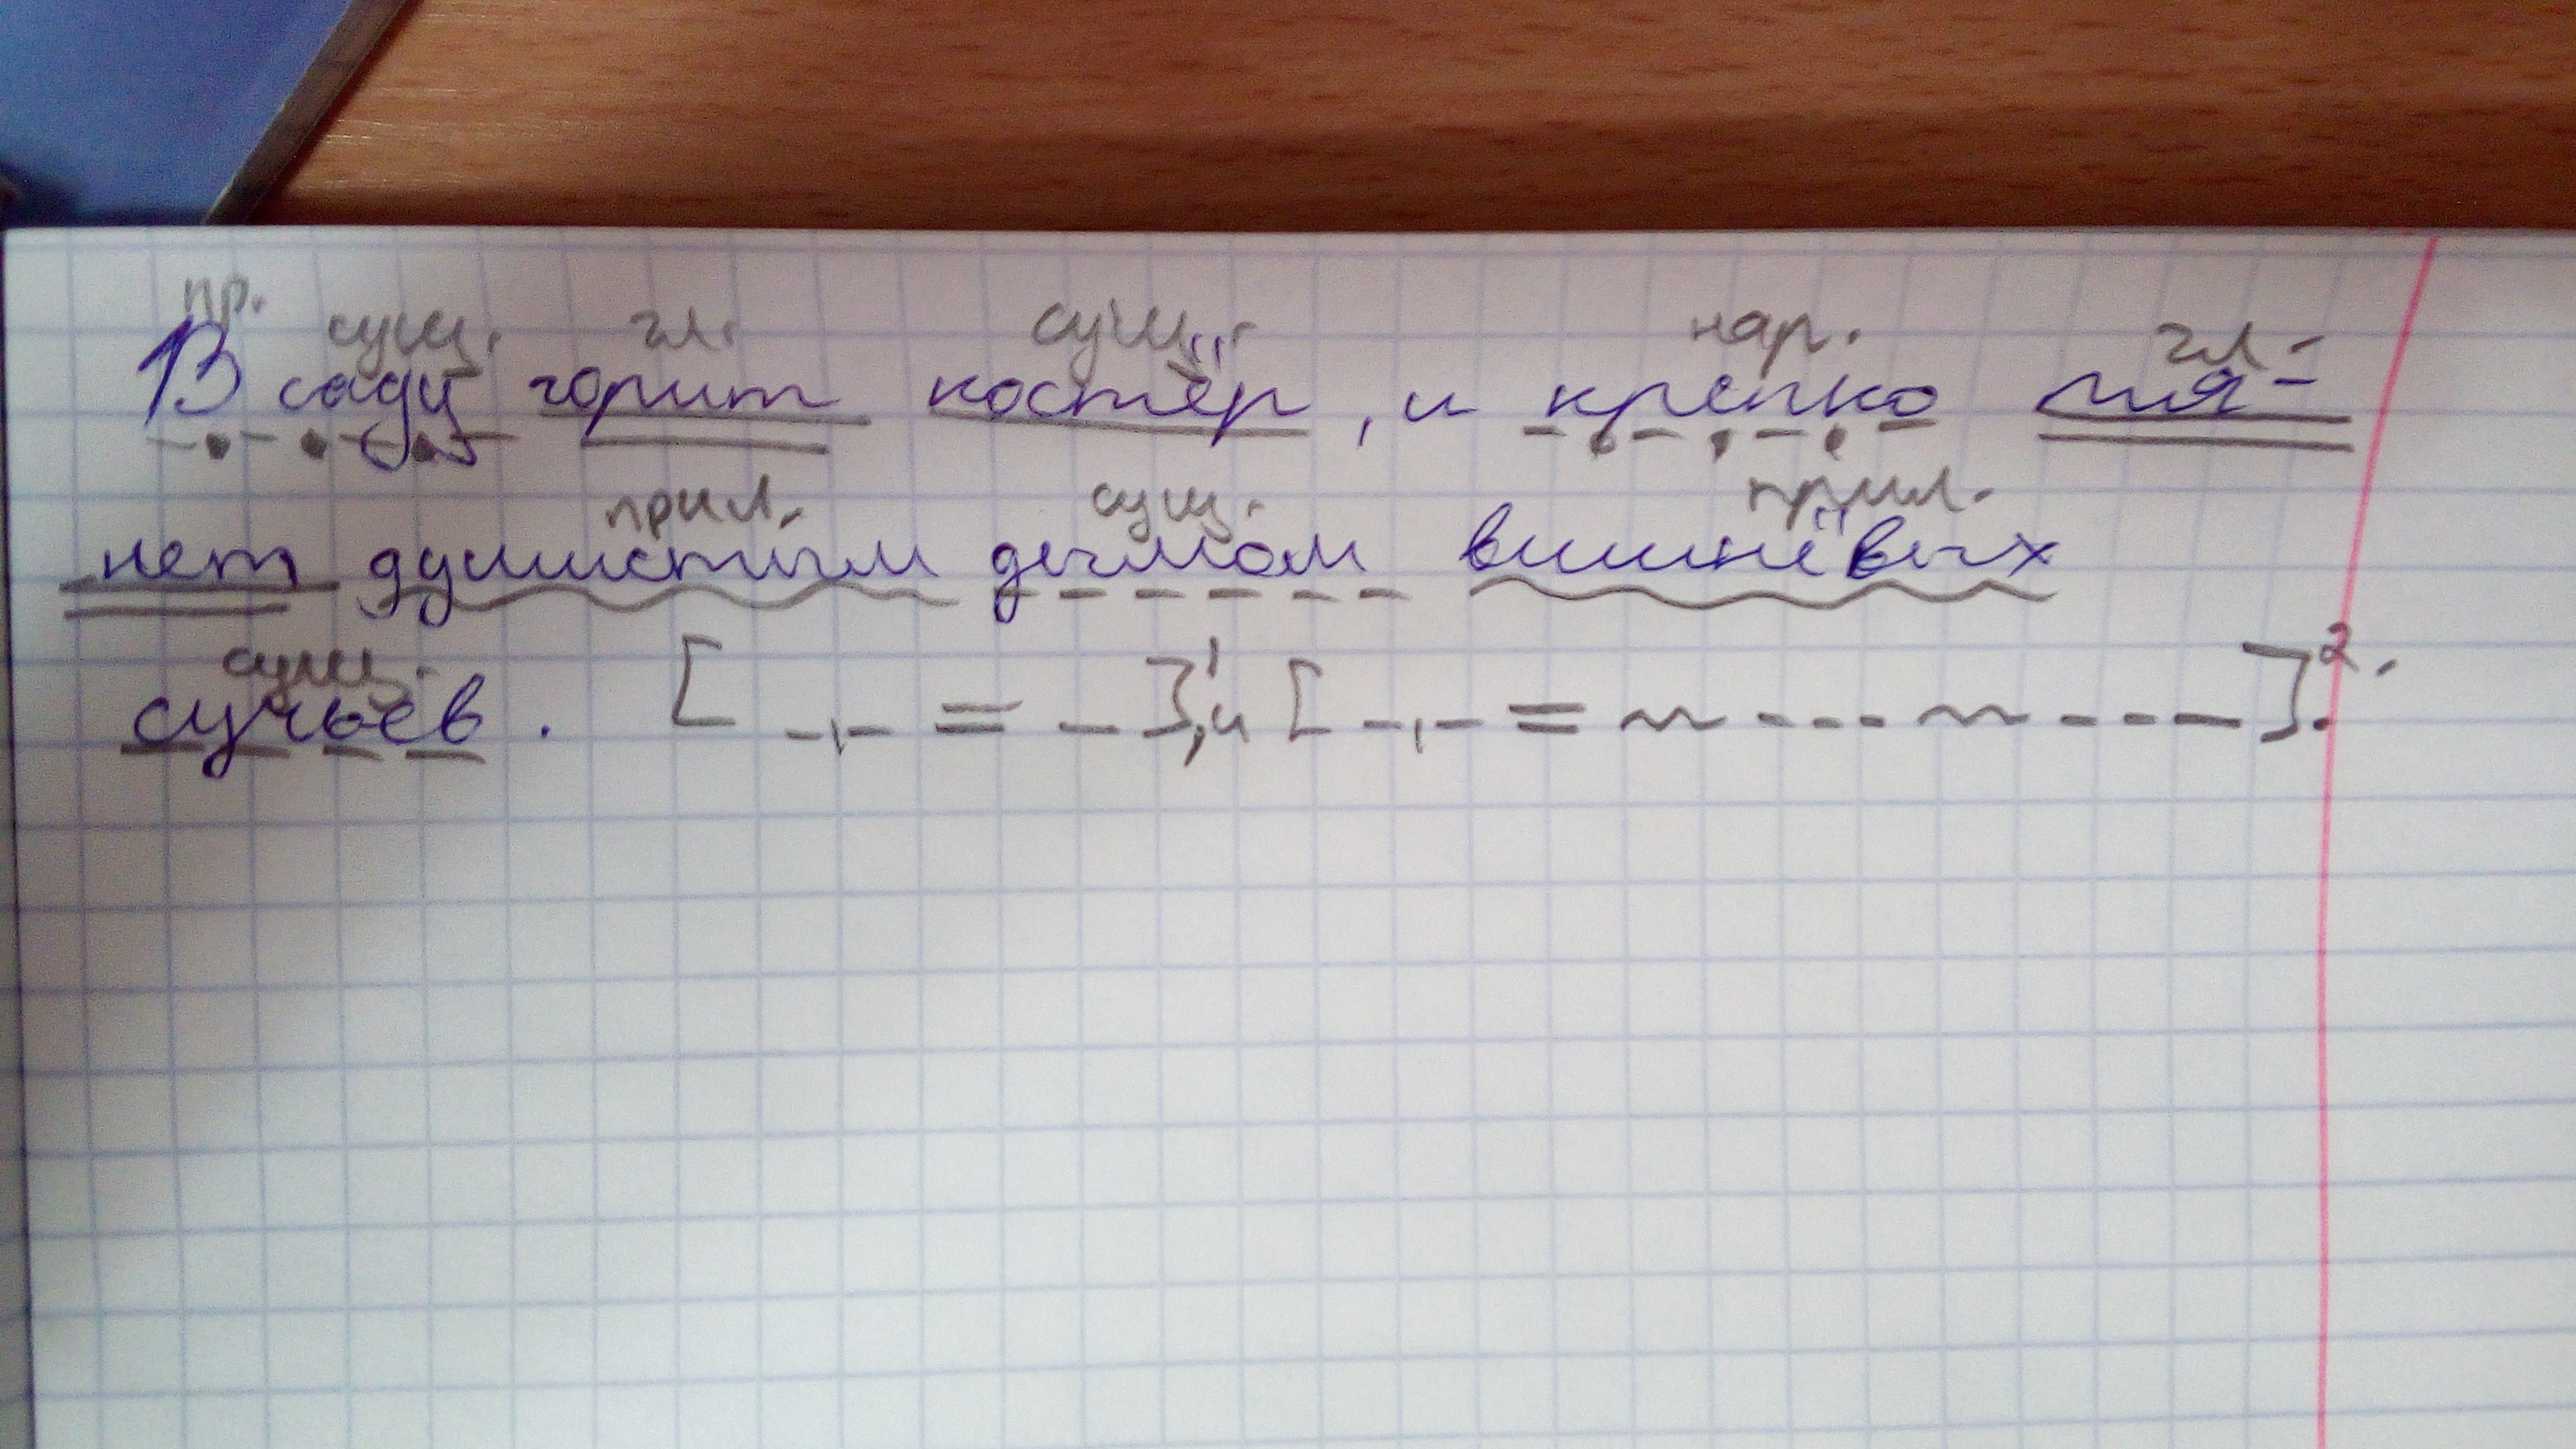 пр. сущ. гл. сущ. нар. гл.
В саду горит костёр, и крепко тя-
прил. сущ. прил.
нет душистым дымом вишнёвых
сущ.
сучьев. [ ]¹, и [ ]².